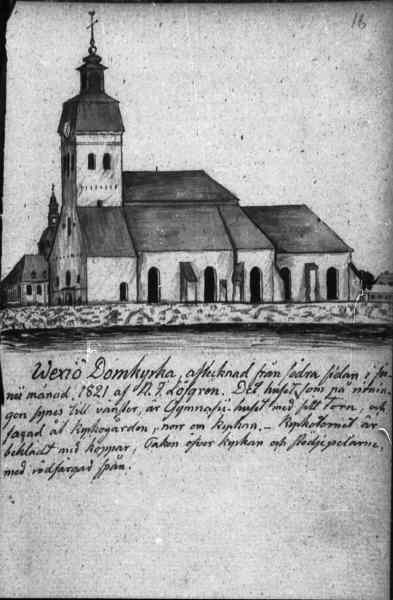 16
Wexiö Domkyrka, aftecknad från södra sidan, i Ju-
nii månad, 1821 af N. I. Löfgren. Det huset, som på ritnin-
gen synes till vänster, är Gymnasii-huset med sitt torn, och
façad åt kyrkogården, norr om kyrkan. – Kyrkotornet är
beklädt med koppar, Taken öfver kyrkan och stödjepelarne,
med rödfärgad spån.